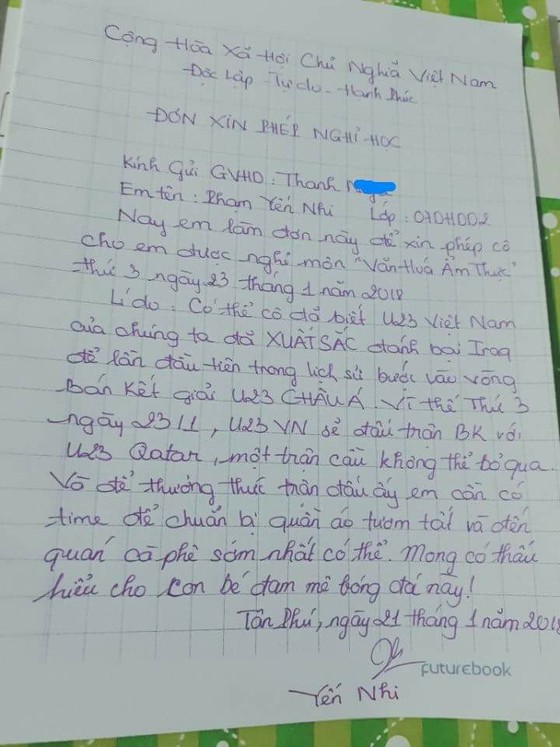 Cộng Hòa Xã Hội Chủ Nghĩa Việt Nam
Độc Lập - Tự do - Hạnh Phúc
ĐƠN XIN PHÉP NGHỈ HỌC
Kính Gửi GVHD : Thanh
Em tên : Phạm Yến Nhi Lớp : 07DHDD2
Nay em làm đơn này để xin phép cô
cho em được nghỉ môn "Văn Hoá Ẩm Thực"
thứ 3 ngày 23 tháng 1 năm 2018
Lí do : Có thể cô đã biết U23 Việt Nam
của chúng ta đã XUẤT SẮC đánh bại Iraq
để lần đầu tiên trong lịch sử bước vào vòng
Bán kết giải U23 CHÂU Á. Vì thế Thứ 3
ngày 23/1, U23 VN sẽ đấu trận BK với
U23 Qatar, một trận cầu không thể bỏ qua.
Và để thưởng thức trận đấu ấy em cần có
time để chuẩn bị quần áo tươm tất và đến
quán cà phê sớm nhất có thể. Mong cô thấu
hiểu cho con bé đam mê bóng đá này!
Tân Phú, ngày 21 tháng 1 năm 2018
futurebook
Yến Nhi